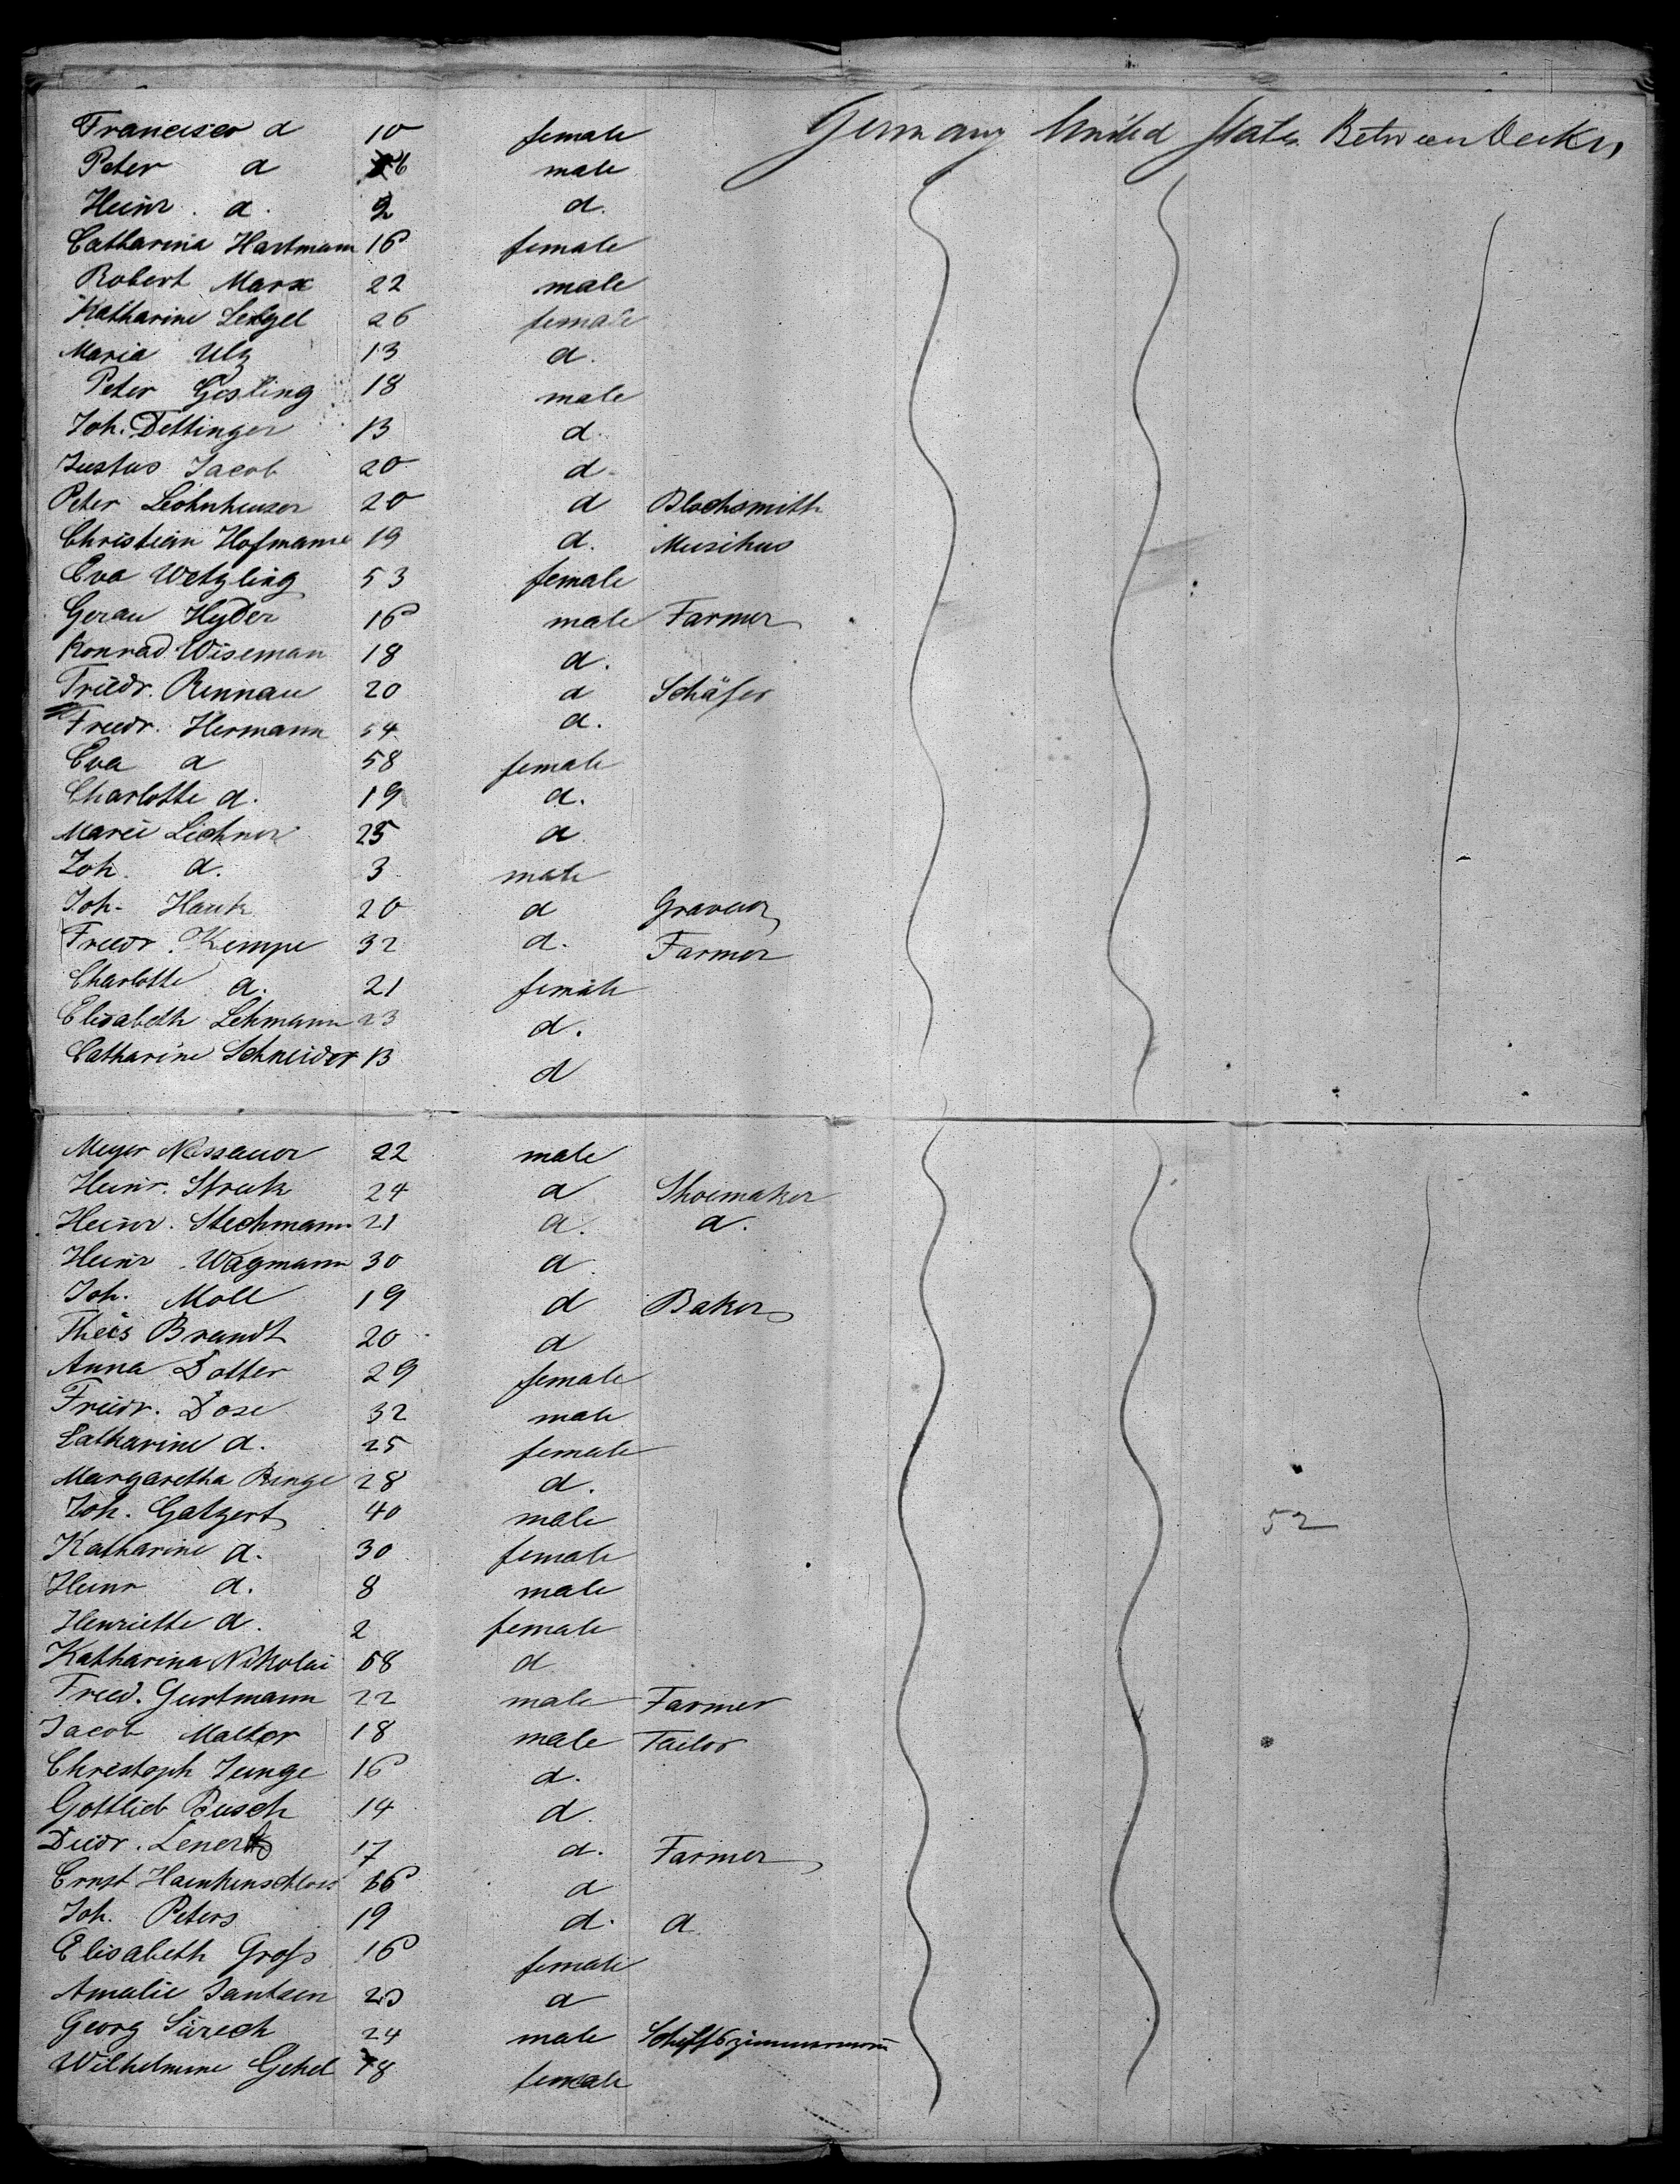 Francisca d 10 female Germany United States Between Decks
Peter d 6 male
Heinr. d. 9 d.
Catharina Hartmann 16 female
Robert Marx 22 male
Katharine Lengel 26 female
Maria Ulz 13 d.
Peter Gesling 18 male
Joh. Dettinger 13 d.
Justus Jacob 20 d.
Peter Leohnheuser 20 d Blacksmith
Christian Hofmann 19 d. Musikus
Eva Wetzling 53 female
Gerau Hyder 16 male Farmer
Konrad Wiseman 18 d.
Friedr. Rennau 20 d Schäfer
Friedr. Hermann 54 d.
Eva d 58 female
Charlotte d. 19 d.
Marie Lichner 25 d
Joh. d. 3 male
Joh. Hauk 20 d Graveur
Friedr. Kempe 32 d. Farmer
Charlotte d. 21 female
Elisabeth Lehmann 23 d.
Catharine Schneider 13 d
Meyer Nassauer 22 male
Heinr. Struk 24 d Shoemaker
Heinr. Stechmann 21 d. d.
Heinr. Wagmann 30 d.
Joh. Moll 19 d Baker
Theis Brandt 20 d
Anna Dotter 29 female
Friedr. Dose 32 male
Catharine d. 25 female
Margaretha Runge 28 d.
Joh. Gatzert 40 male 52
Katharine d. 30 female
Heinr d. 8 male
Henriette d. 2 female
Katharina Nikolai 58 d
Fried. Gurtmann 22 male Farmer
Jacob Malter 18 male Tailor
Christoph Junge 16 d.
Gottlieb Busch 14 d.
Diedr. Lener 17 d. Farmer
Ernst 16 d
Joh. Peters 19 d. d
Elisabeth Groſs 16 female
Amalie Jantzen 20 d
Georg Sürech 24 male Schiffszimmermann
Wilhelmine Gekel 18 female